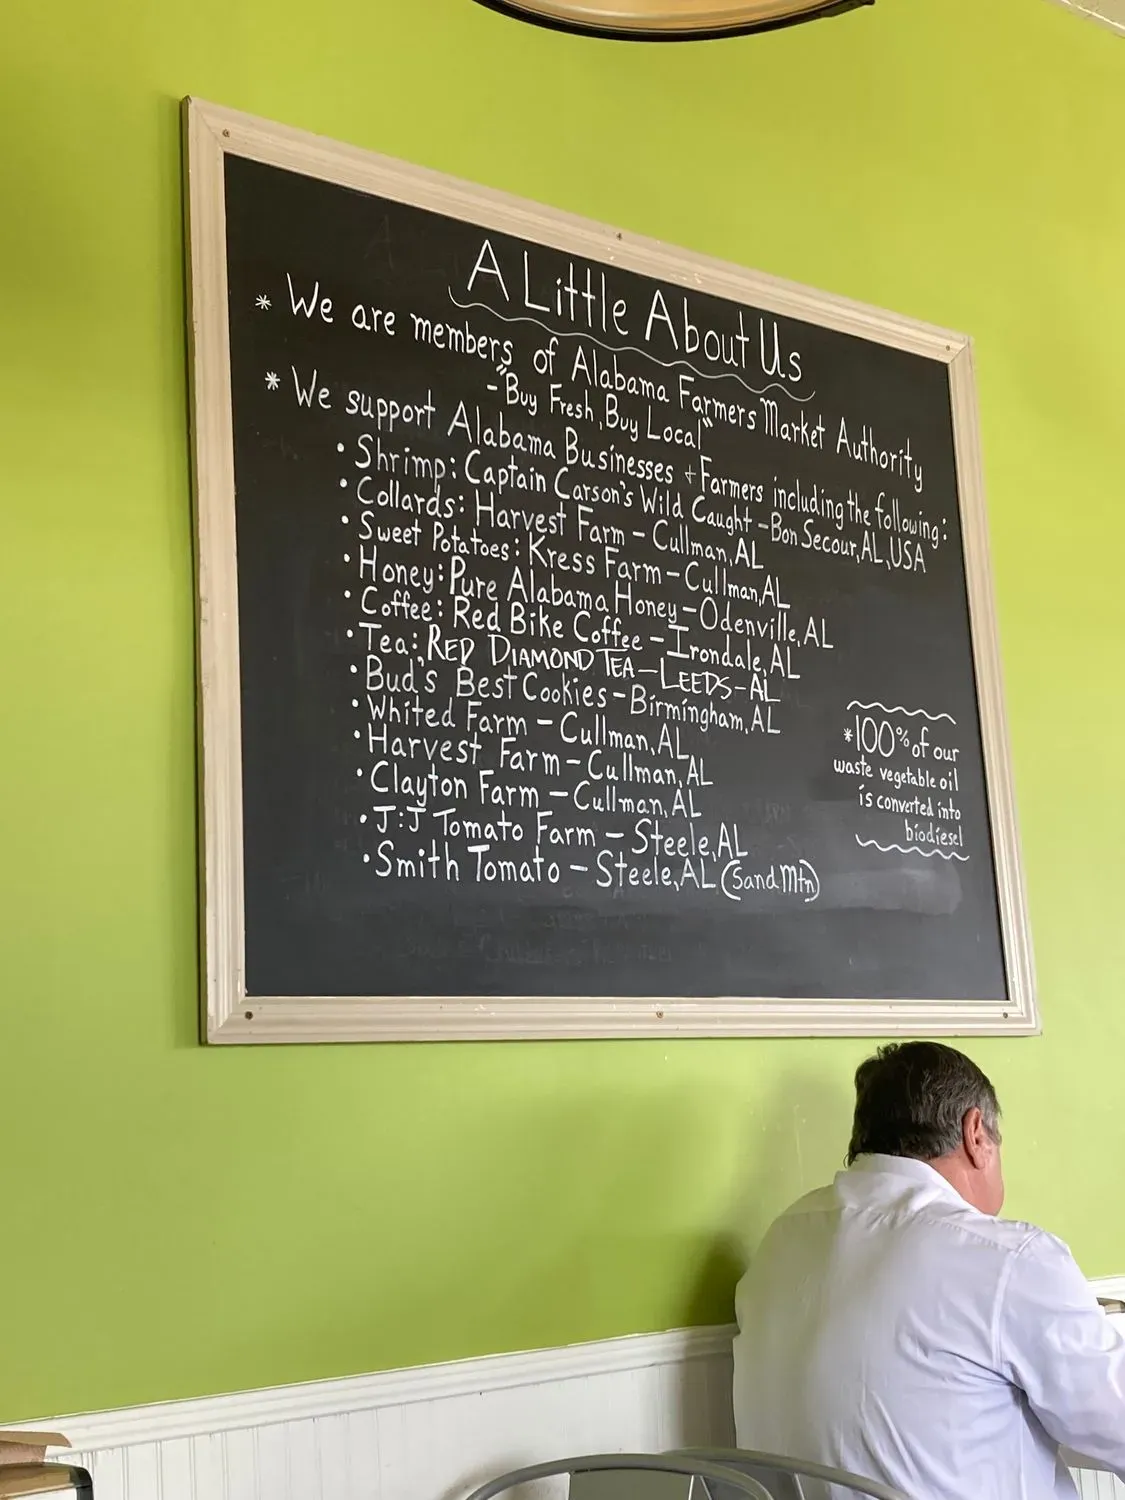 A Little About Us
* We are members of Alabama Farmers Market Authority
- "Buy Fresh, Buy Local"
* We support Alabama Businesses + Farmers including the following:
• Shrimp: Captain Carson's Wild Caught - Bon Secour, AL, USA
• Collards: Harvest Farm - Cullman, AL
• Sweet Potatoes: Kress Farm - Cullman, AL
• Honey: Pure Alabama Honey - Odenville, AL
• Coffee: Red Bike Coffee - Irondale, AL
• Tea: RED DIAMOND TEA - LEEDS - AL
• Bud's Best Cookies - Birmingham, AL
• Whited Farm - Cullman, AL
• Harvest Farm - Cullman, AL
• Clayton Farm - Cullman, AL
• J:J Tomato Farm - Steele, AL
• Smith Tomato - Steele, AL (Sand Mtn)
*100% of our
waste vegetable oil
is converted into
biodiesel